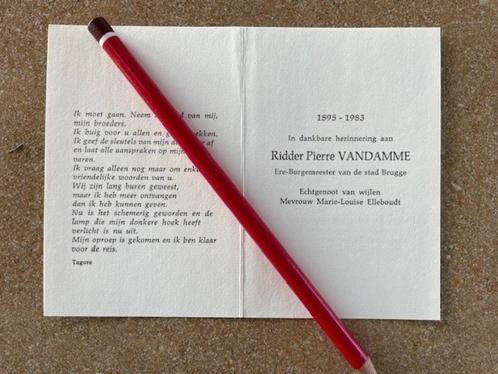 Ik moet gaan. Neem van mij,
mijn broeders.
Ik buig voor u allen en
Ik geef de sleutels van mijn af
en laat alle aanspraken op mijn
varen.
Ik vraag alleen nog maar om
vriendelijke woorden van u.
Wij zijn lang buren geweest,
maar ik heb meer ontvangen
dan ik heb kunnen geven.
Nu is het schemerig geworden en de
lamp die mijn donkere hoek heeft
verlicht is nu uit.
Mijn oproep is gekomen en ik ben klaar
voor de reis.
Tagore
1895 - 1983
In dankbare herinnering aan
Ridder Pierre VANDAMME
Ere-Burgemeester van de stad Brugge
Echtgenoot van wijlen
Mevrouw Marie-Louise Elleboudt